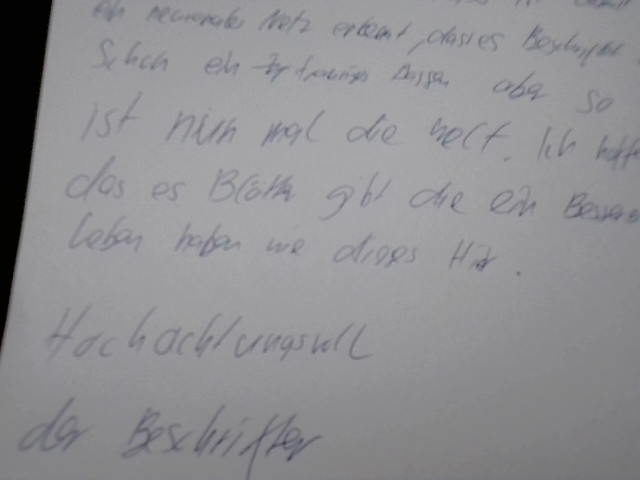 ein neuronales Netz erkennt, dass es Beschriftet
Schon ein trauriges Dassein aber so
ist nun mal die welt. Ich hoffe
das es Blätter gibt die ein Besseres
leben haben wie dieses Hier.
Hochachtungsvoll
der Beschrifter